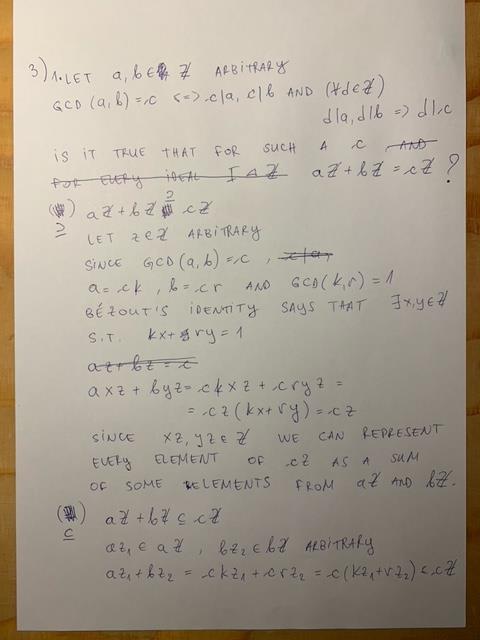 3) 1. LET a, b ∈ ℤ ARBITRARY
GCD (a, b) = c <=> c|a, c|b AND (∀d∈ℤ)
d|a, d|b => d|c
IS IT TRUE THAT FOR SUCH A c AND
FOR EVERY IDEAL I ⊲ ℤ aℤ + bℤ = cℤ ?
(⊇) aℤ + bℤ ⊇ cℤ
LET z∈ℤ ARBITRARY
SINCE GCD(a, b) = c , c|a,
a = ck , b = cr AND GCD(k, r) = 1
BÉZOUT'S IDENTITY SAYS THAT ∃x,y∈ℤ
S.T. kx + ry = 1
az + bz = c
axz + byz = ckxz + cryz =
= cz(kx + ry) = cz
SINCE xz, yz ∈ ℤ WE CAN REPRESENT
EVERY ELEMENT OF cℤ AS A SUM
OF SOME ELEMENTS FROM aℤ AND bℤ.
(⊆) aℤ + bℤ ⊆ cℤ
az₁ ∈ aℤ , bz₂ ∈ bℤ ARBITRARY
az₁ + bz₂ = ckz₁ + crz₂ = c(kz₁ + rz₂) ∈ cℤ